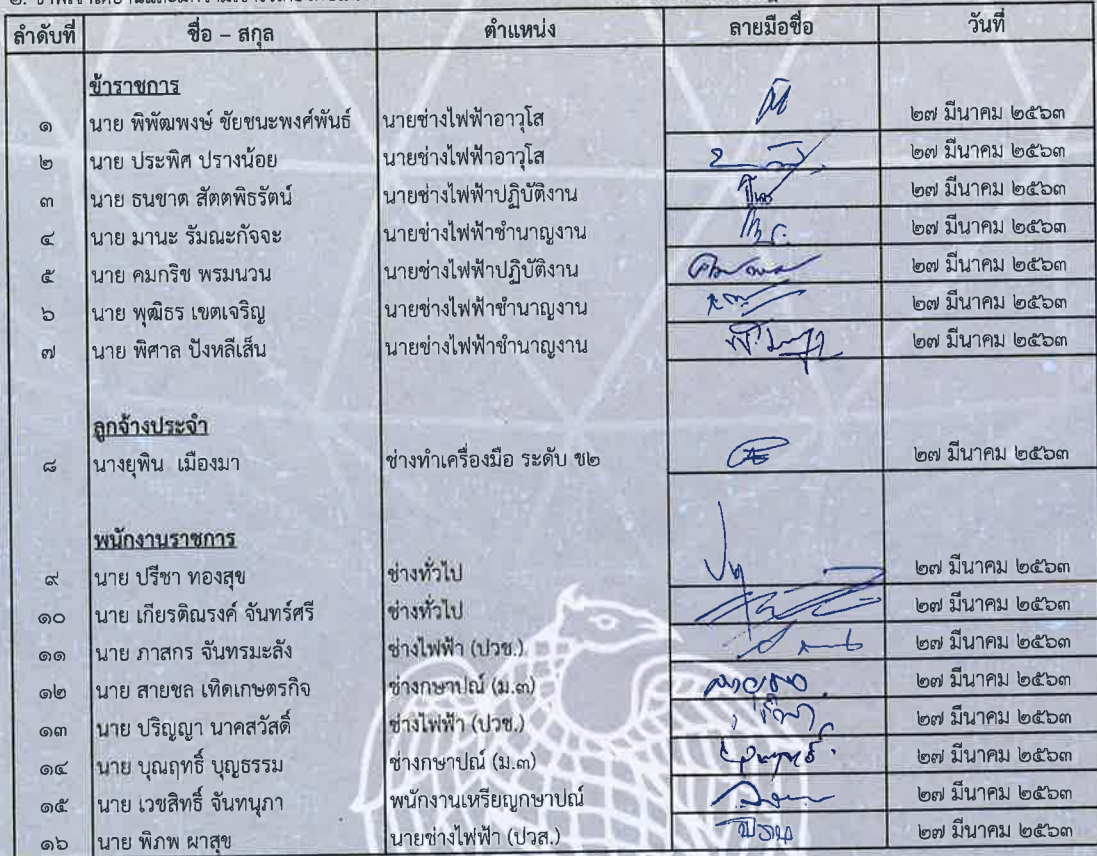 ลำดับที่ ชื่อ – สกุล ตำแหน่ง ลายมือชื่อ วันที่
ข้าราชการ
๑ นาย พิพัฒพงษ์ ชัยชนะพงศ์พันธ์ นายช่างไฟฟ้าอาวุโส ๒๗ มีนาคม ๒๕๖๓
๒ นาย ประพิศ ปรางน้อย นายช่างไฟฟ้าอาวุโส ๒๗ มีนาคม ๒๕๖๓
๓ นาย ธนชาต สัตตพิธรัตน์ นายช่างไฟฟ้าปฏิบัติงาน ๒๗ มีนาคม ๒๕๖๓
๔ นาย มานะ รัมณะกัจจะ นายช่างไฟฟ้าชำนาญงาน ๒๗ มีนาคม ๒๕๖๓
๕ นาย คมกริช พรมนวน นายช่างไฟฟ้าปฏิบัติงาน ๒๗ มีนาคม ๒๕๖๓
๖ นาย พุฒิธร เขตเจริญ นายช่างไฟฟ้าชำนาญงาน ๒๗ มีนาคม ๒๕๖๓
๗ นาย พิศาล ปังหลีเส็น นายช่างไฟฟ้าชำนาญงาน ๒๗ มีนาคม ๒๕๖๓
ลูกจ้างประจำ
๘ นางยุพิน เมืองมา ช่างทำเครื่องมือ ระดับ ช๒ ๒๗ มีนาคม ๒๕๖๓
พนักงานราชการ
๙ นาย ปรีชา ทองสุข ช่างทั่วไป ๒๗ มีนาคม ๒๕๖๓
๑๐ นาย เกียรติณรงค์ จันทร์ศรี ช่างทั่วไป ๒๗ มีนาคม ๒๕๖๓
๑๑ นาย ภาสกร จันทรมะลัง ช่างไฟฟ้า (ปวช.) ๒๗ มีนาคม ๒๕๖๓
๑๒ นาย สายชล เทิดเกษตรกิจ ช่างกษาปณ์ (ม.๓) ๒๗ มีนาคม ๒๕๖๓
๑๓ นาย ปริญญา นาคสวัสดิ์ ช่างไฟฟ้า (ปวช.) ๒๗ มีนาคม ๒๕๖๓
๑๔ นาย บุณฤทธิ์ บุญธรรม ช่างกษาปณ์ (ม.๓) ๒๗ มีนาคม ๒๕๖๓
๑๕ นาย เวชสิทธิ์ จันทนุภา พนักงานเหรียญกษาปณ์ ๒๗ มีนาคม ๒๕๖๓
๑๖ นาย พิภพ ผาสุข นายช่างไฟฟ้า (ปวส.) ๒๗ มีนาคม ๒๕๖๓